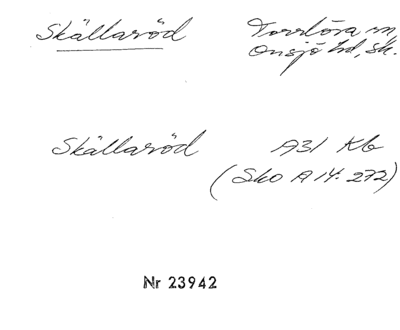 Skällaröd Torrlösa sn,
Onsjö hd, Sk.
Skällaröd A31 Kb
(SkO A 14: 272)
Nr 23942